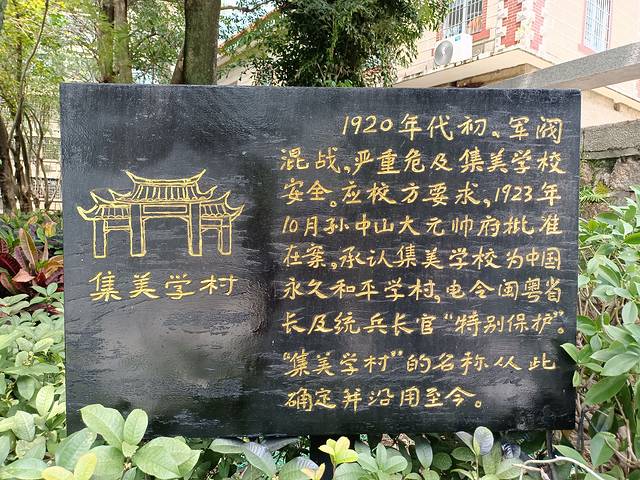 集美学村
1920年代初、军阀
混战，严重危及集美学校
安全。应校方要求，1923年
10月孙中山大元帅府批准
在案，承认集美学校为中国
永久和平学村，电令闽粤省
长及统兵长官“特别保护”。
“集美学村”的名称从此
确定并沿用至今。